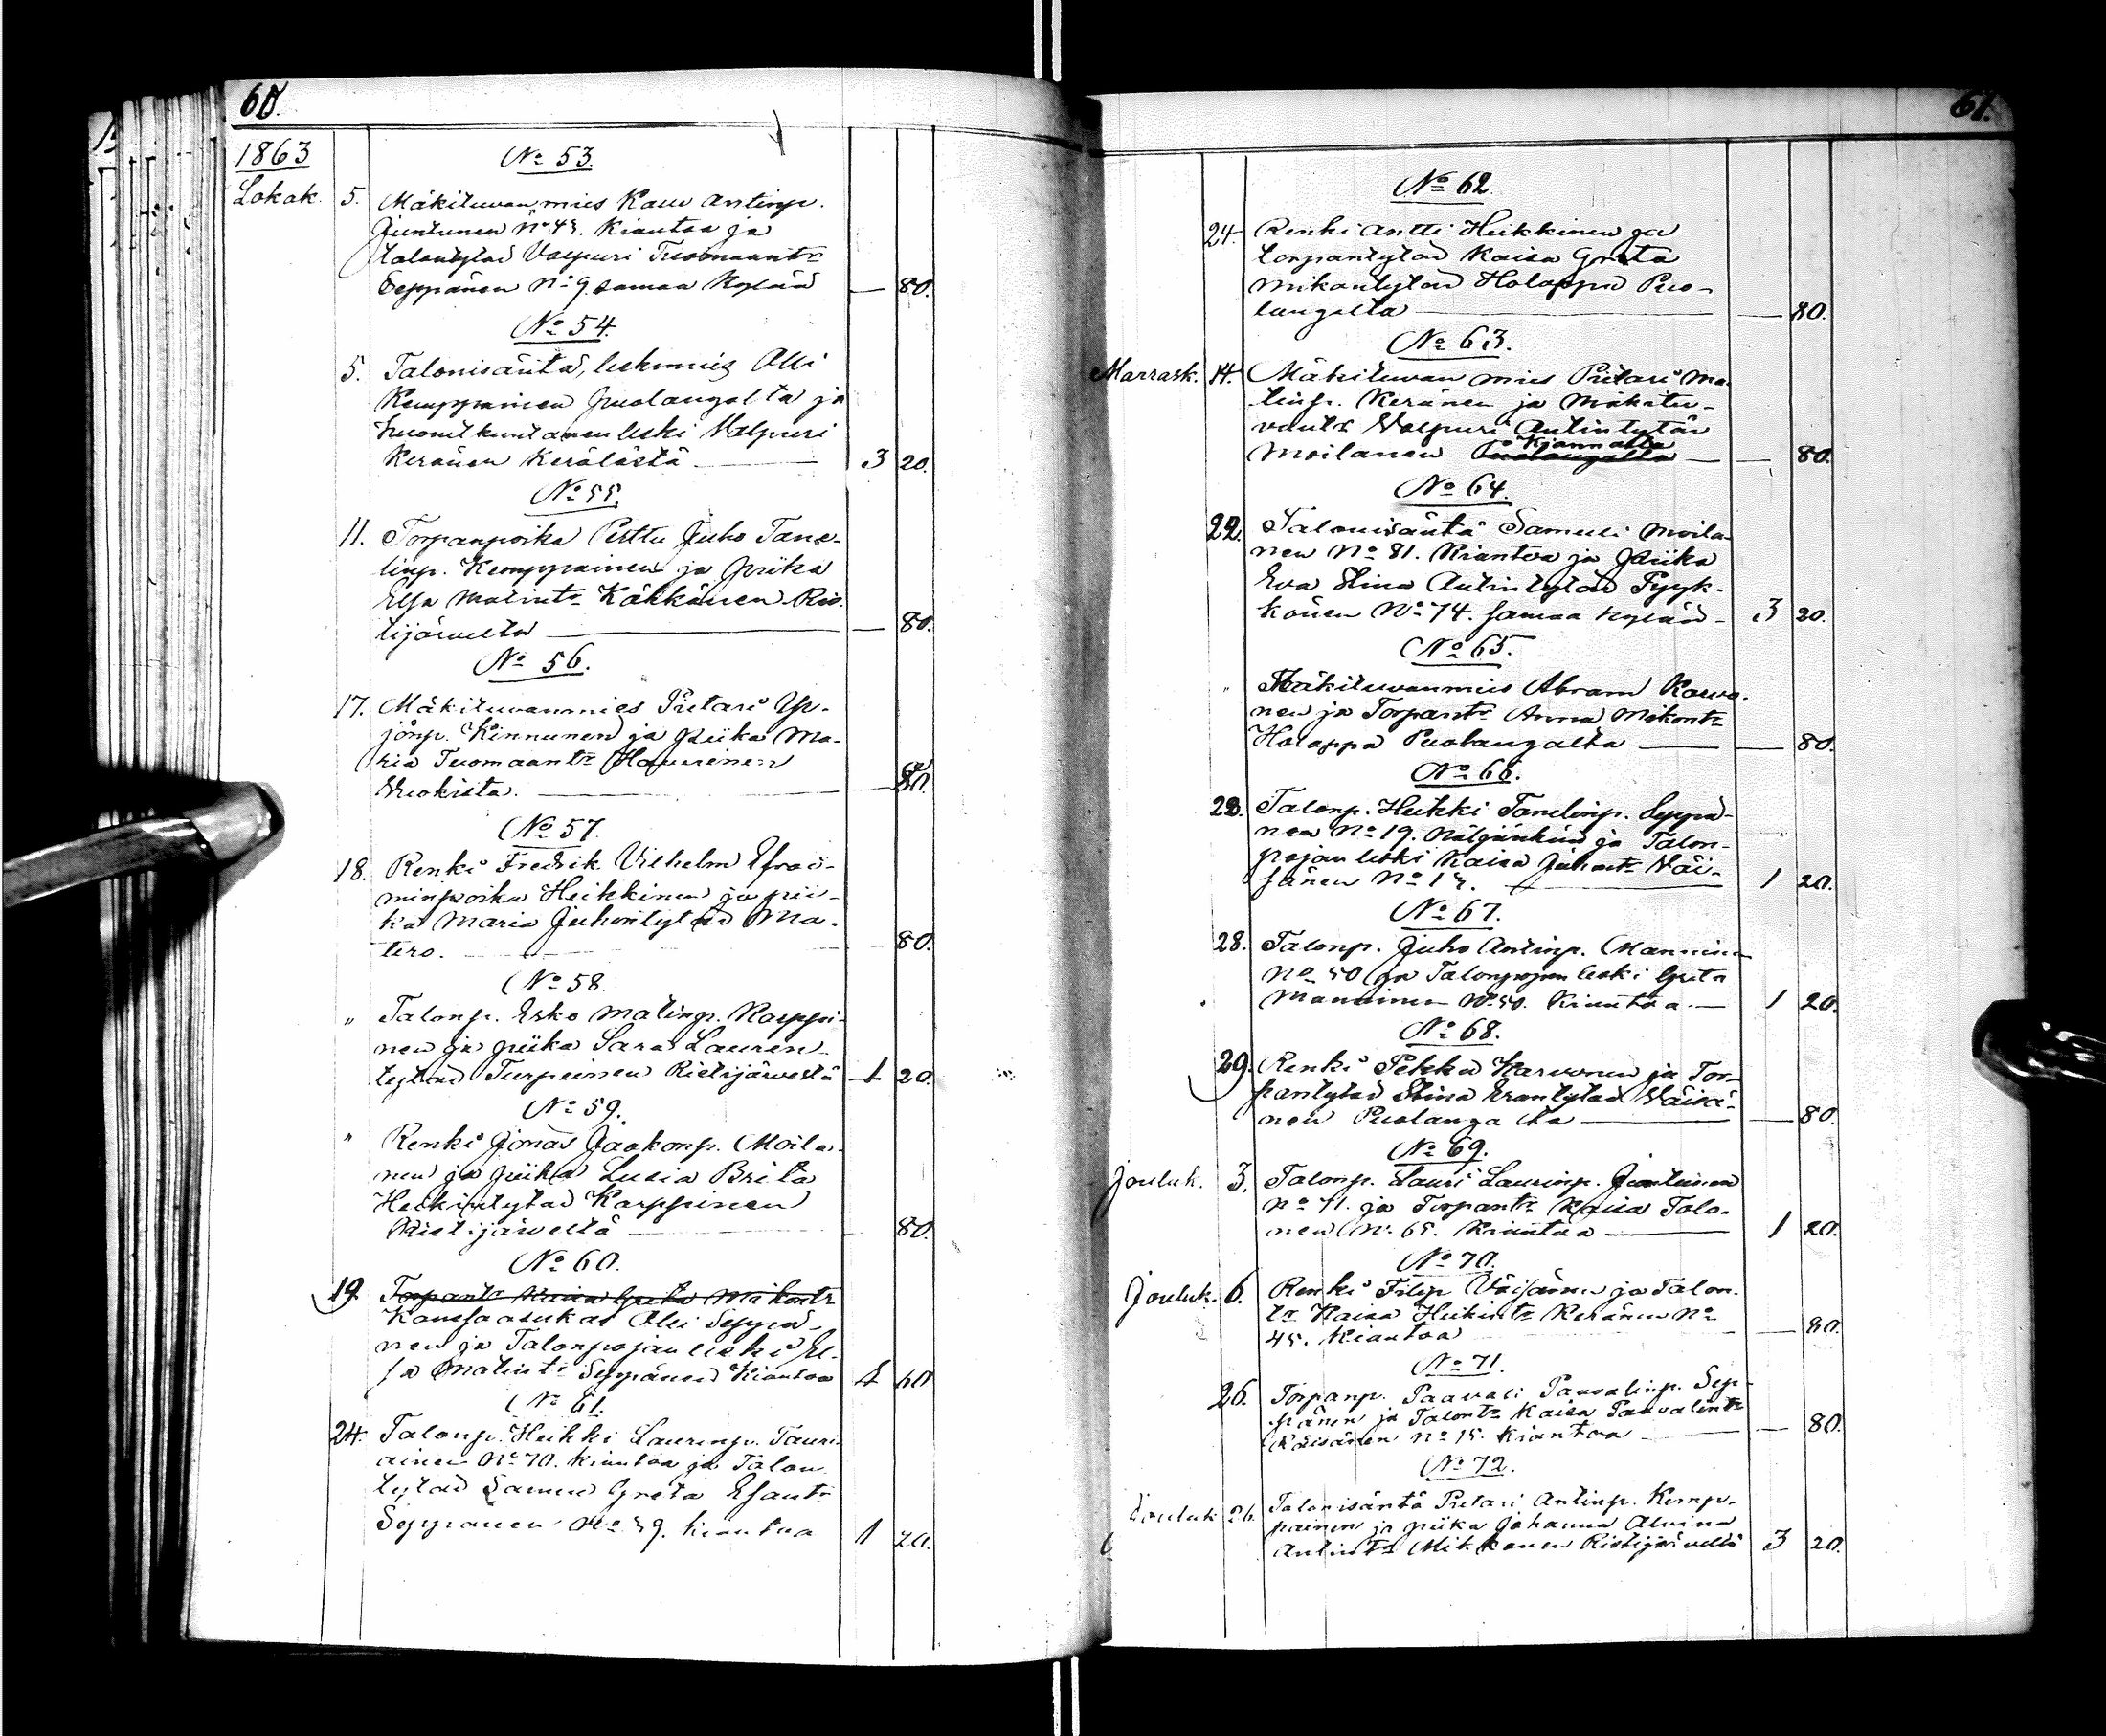 60.
1863
No 53.
Lokak. 5. Mäkituvan mies Antinp.
Juntunen No 45. Kiantaa ja
talontytär Valpuri Tuomaantr
Seppänen No 9 samaa kylää — 80.
No 54.
5. Talonisäntä, leskimies Olli
Kemppainen Puolangalta ja
leski Valpuri
Keränen Kerälästä — 3 20.
No 55.
11. Torpanpoika Perttu Juho Tane-
linp. Kemppainen ja piika
Elsa Matintr Käkkönen Ris-
tijärveltä — 80.
No 56.
17. Mäkituvanmies Pietari Yr-
jönp. Kinnunen ja piika Ma-
ria Tuomaantr Haurinen
Vuokista. — 80.
No 57.
18. Renki Fredrik Vilhelm Efrai-
minpoika Heikkinen ja pii-
ka Maria Juhontytär Ma-
tero. — 80.
No 58.
" Talonp. Esko Matinp. Karppi-
nen ja piika Sara Laurin-
tytär Turpeinen Ristijärveltä 1 20.
No 59.
" Renki Jonas Jaakonp. Moila-
nen ja piika Lusia Brita
Heikintytär Karppinen
Ristijärveltä — 80.
No 60.
19. Torpantr Kaisa Greta Mikontr
Kanssa asukas Olli Seppä-
nen ja Talonpojan leski El-
sa Matintr Seppänen Kiantaa 1 60
No 61.
24. Talonp. Heikki Laurinp. Tauri-
ainen No 70. Kiantaa ja Talon
tytär Sanna Greta Esantr
Seppänen No 39. Kiantaa 1 20.
61.
No 62.
24. Renki Antti Heikkinen ja
torpantytär Kaisa Greta
Mikontytär Holappa Puo-
langalta — 80.
No 63.
Marrask. 14. Mäkituvan mies Pietari Ma-
tinp. Keränen ja Mäkitu-
vantr Valpuri Antintytär
Kiannalta
Moilanen Puolangalta — 80.
No 64.
22. Talonisäntä Samuli Moila-
nen No 81. Kiantaa ja Piika
Eva Stina Antintytär Pyyk-
könen No 74. samaa kylää — 3 20.
No 65.
" Mäkituvanmies Abram Karvo-
nen ja Torpantr Anna Mikontr
Holappa Puolangalta — 80.
No 66.
22. Talonp. Heikki Tanelinp. Seppä-
nen No 19. Näljänkää ja Talon-
pojan leski Kaisa Juhontr Väi-
sänen No 13. — 1 20.
No 67.
28. Talonp. Juho Antinp. Manninen
No 50 ja Talonpojan leski Greta
Manninen No 50. Kiantaa — 1 20.
No 68.
29. Renki Pekka Karvonen ja Tor-
pantytär Stina Erantytär Väisä-
nen Puolangalta — 80.
No 69.
Jouluk. 3. Talonp. Lauri Laurinp. Juntunen
No 71. ja Torpantr Kaisa Tolo-
nen No 65. Kiantaa — 1 20.
No 70.
Jouluk. 6. Renki Filip Väisänen ja Talon.
tr Kaisa Heikintr Keränen No
45. Kiantaa — 80.
No 71.
26. Torpanp. Paavali Paavalinp. Sep-
pänen ja Talontr Kaisa Paavalintr
Räisänen No 15. Kiantaa — 80.
No 72.
Jouluk 26. Talonisäntä Pietari Antinp. Kemp-
painen ja piika Johanna Alvina
Antintr Mikkonen Ristijärveltä 3 20.